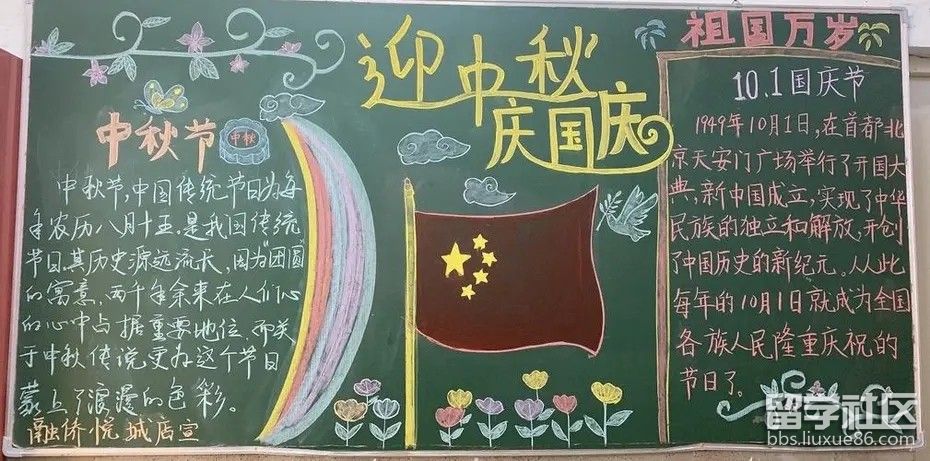 迎中秋
庆国庆
中秋节
中秋
中秋节,中国传统节日为每
年农历八月十五,是我国传统
节日,其历史源远流长,因为"团圆"
的寓意,两千年余来在人们心
的心中占据重要地位,而关
于中秋传说,更为这个节日
蒙上了浪漫的色彩。
融侨悦城店宣
祖国万岁
10.1国庆节
1949年10月1日,在首都北
京天安门广场举行了开国大
典,新中国成立,实现了中华
民族的独立和解放,开创
了中国历史的新纪元。从从此
每年的10月1日就成为全国
各族人民隆重庆祝的
节日了。
留学社区
bbs.liuxue86.com